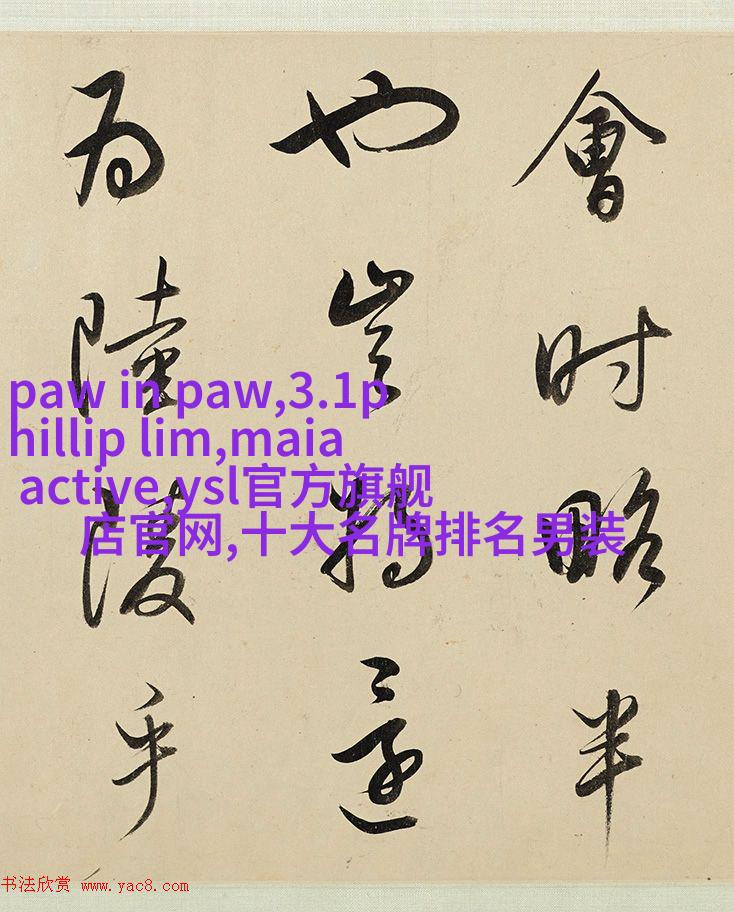 會时略半
也豈特還
为陸陵乎
paw in paw,3.1p
hillip lim,maia
active,ysl官方旗舰
店官网,十大名牌排名男装
书法欣赏 www.yac8.com